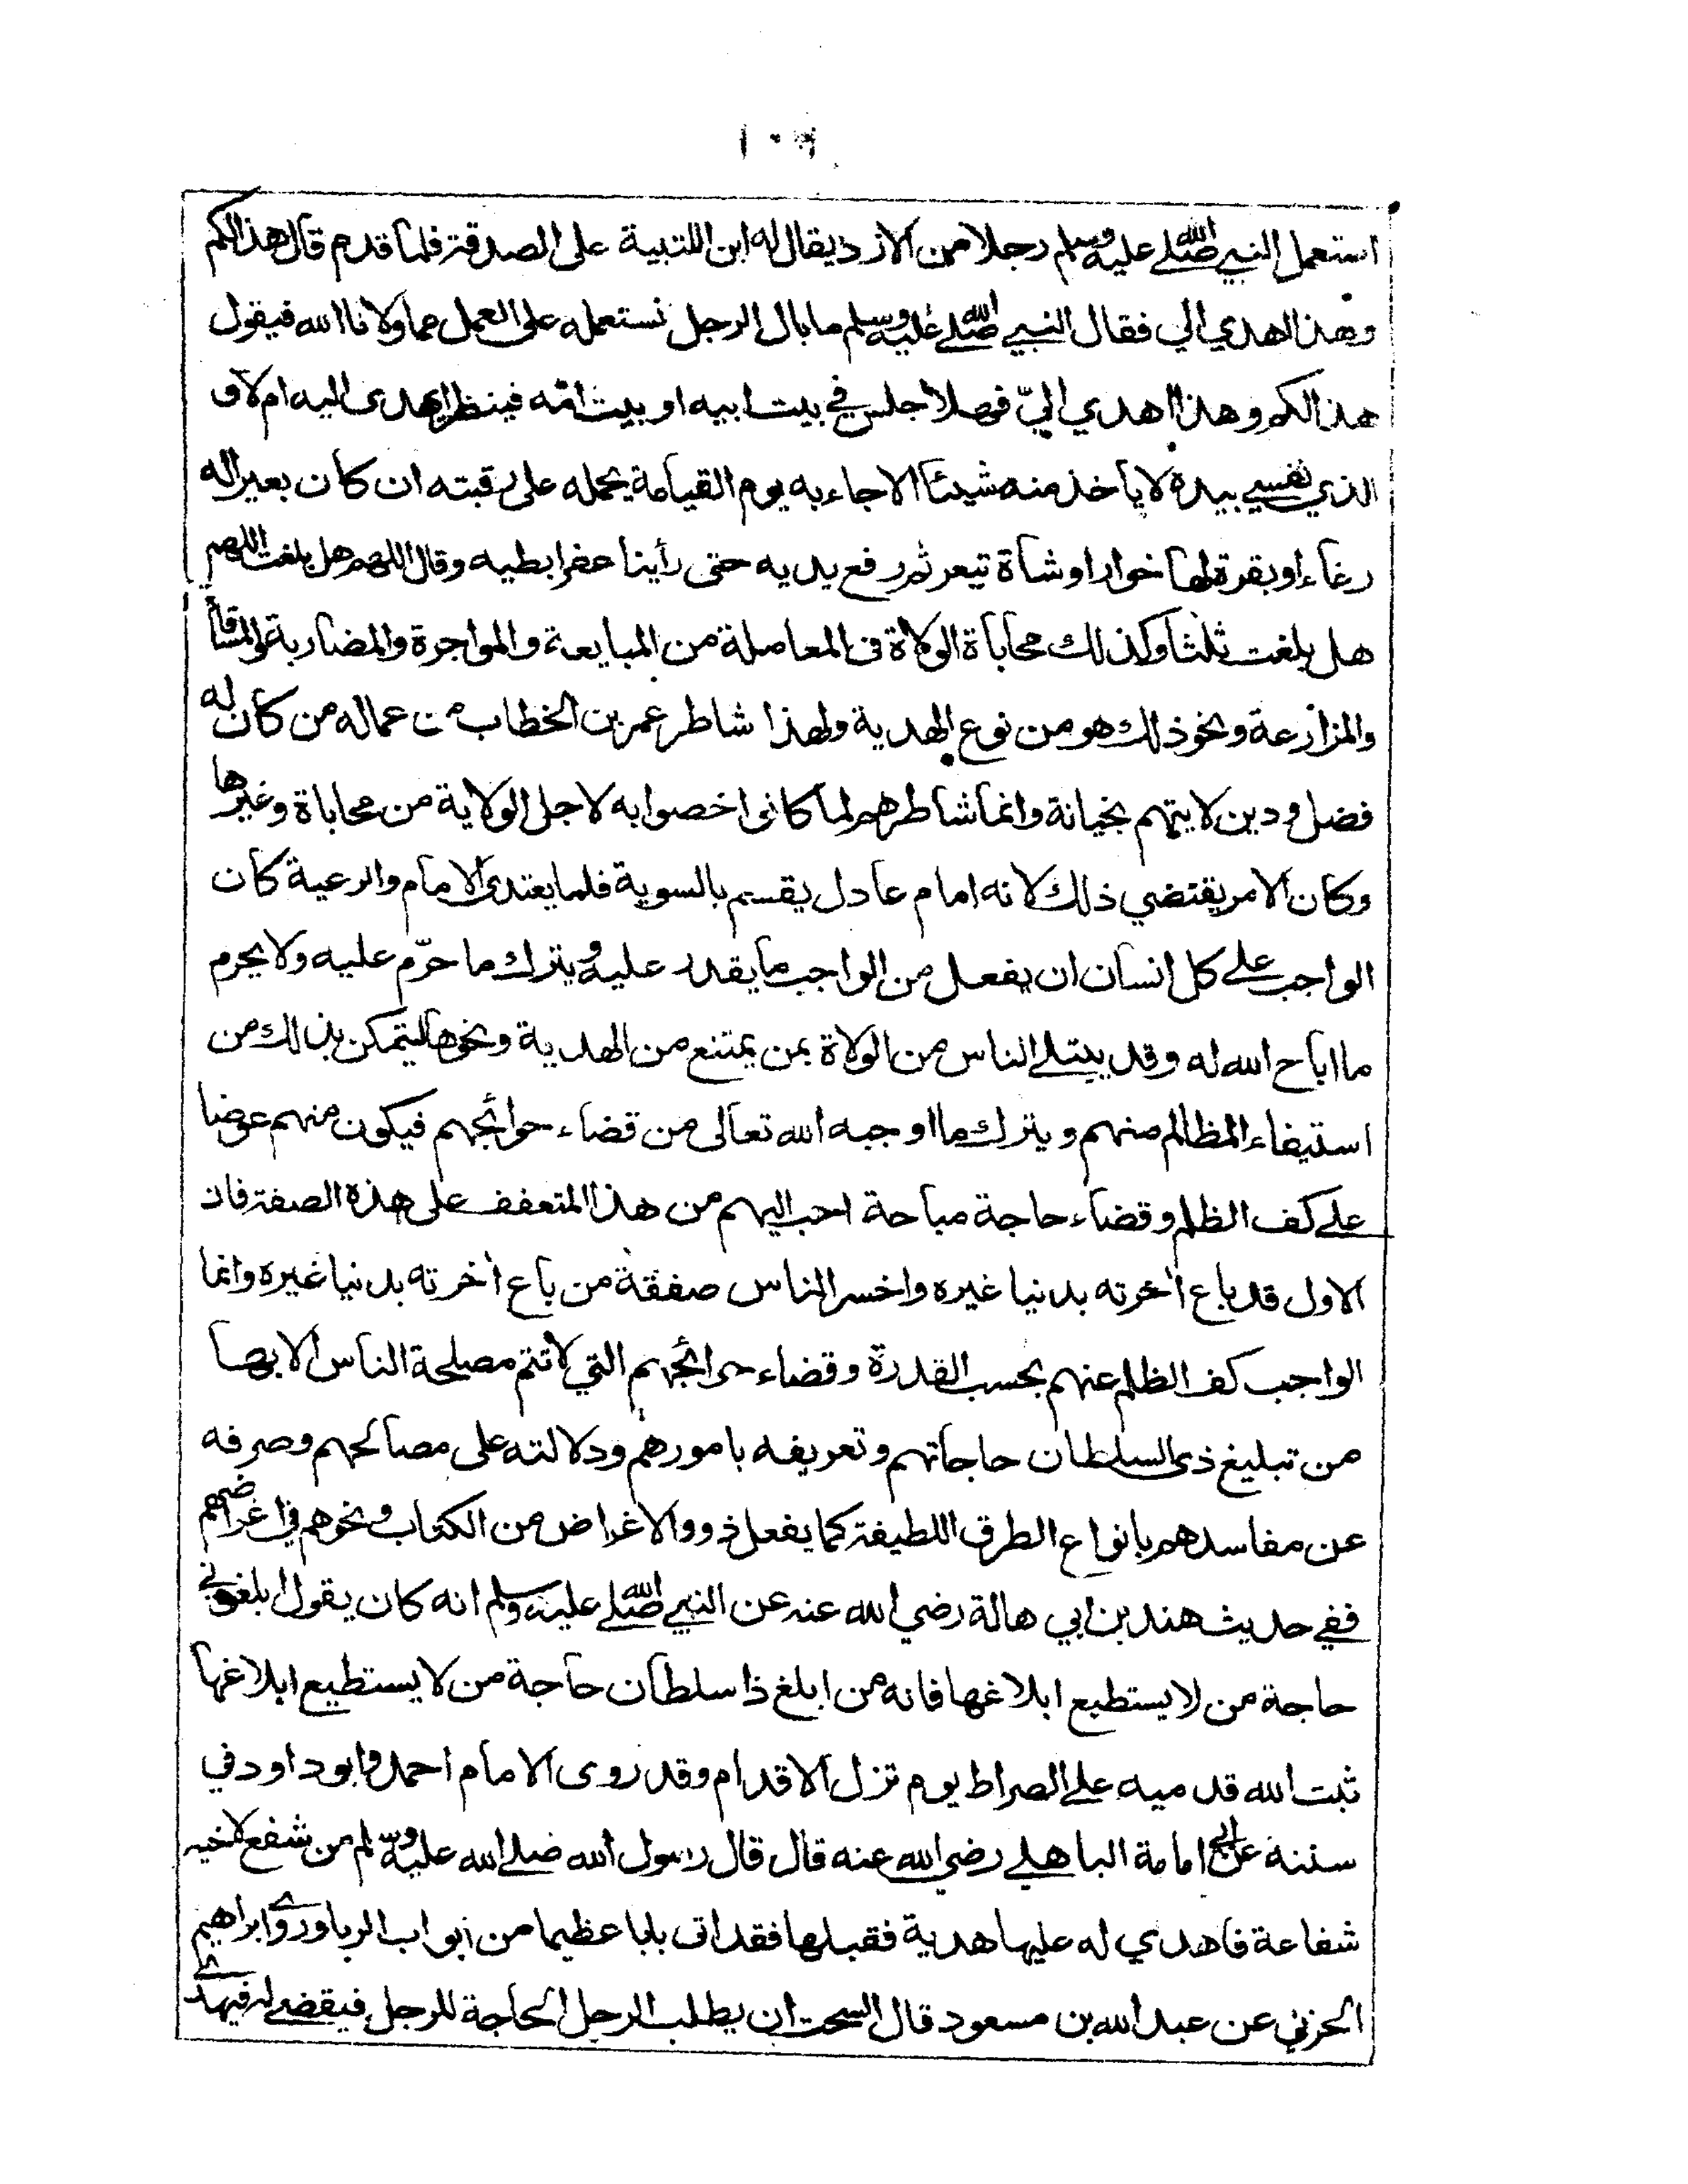 ١٠٩
استعمل النبي صلى الله عليه وسلم رجلا من الازد يقال له ابن اللتبية على الصدقة فلما قدم قال هذا لكم
وهذا اهدي الي فقال النبي صلى الله عليه وسلم ما بال الرجل نستعمله على العمل مما ولانا الله فيقول
هذا لكم وهذا اهدي اليّ فهلا جلس في بيت ابيه او بيت امّه فينظر ايهدى اليه ام لا و
الذي نفسي بيده لا يأخذ منه شيئا الا جاء به يوم القيامة يحمله على رقبته ان كان بعيرا له
رغاء او بقرة لها خوار او شاة تيعر ثم رفع يديه حتى رأينا عفر ابطيه وقال اللهم هل بلغت اللهم
هل بلغت ثلثا وكذلك محاباة الولاة في المعاملة من المبايعة والمواجرة والمضاربة والمساقاة
والمزارعة ونحو ذلك هو من نوع الهدية ولهذا شاطر عمر بن الخطاب من عماله من كان له
فضل ودين لا يتهم بخيانة وانما شاطرهم لما كانوا خصوا به لاجل الولاية من محاباة وغيرها
وكان الامر يقتضي ذلك لانه امام عادل يقسم بالسوية فلما يغتدى الامام والرعية كان
الواجب على كل انسان ان يفعل من الواجب ما يقدر عليه ويترك ما حرّم عليه ولا يحرم
ما اباح الله له وقد يبتلى الناس من الولاة بمن يمتنع من الهدية ونحوها ليتمكن بذلك من
استيفاء المظالم منهم ويترك ما اوجبه الله تعالى من قضاء حوائجهم فيكون منهم عوضا
على كف الظلم وقضاء حاجة مباحة احب اليهم من هذا المتعفف على هذه الصفة فان
الاول قد باع أخرته بدنيا غيره واخسر الناس صفقة من باع أخرته بدنيا غيره وانما
الواجب كف الظلم عنهم بحسب القدرة وقضاء حوائجهم التي لا تتم مصلحة الناس الا بها
من تبليغ ذى السلطان حاجاتهم وتعريفه بامورهم ودلالته على مصالحهم وصرفه
عن مفاسدهم بانواع الطرق اللطيفة كما يفعل ذووا الاغراض من الكتاب ونحوهم في اغراضهم
ففي حديث هند بن ابي هالة رضي الله عنه عن النبي صلى الله عليه وسلم انه كان يقول ابلغوني
حاجة من لا يستطيع ابلاغها فانه من ابلغ ذا سلطان حاجة من لا يستطيع ابلاغها
ثبت الله قدميه على الصراط يوم تزل الاقدام وقد روى الامام احمد وابو داود في
سننه عن ابي امامة الباهلي رضي الله عنه قال قال رسول الله صلى الله عليه وسلم من شفع لاخيه
شفاعة فاهدي له عليها هدية فقبلها فقد اتى بابا عظيما من أبواب الربا وروى ابراهيم
الحزني عن عبد الله بن مسعود قال السحت ان يطلب الرجل الحاجة للرجل فيقضى له فيهدى